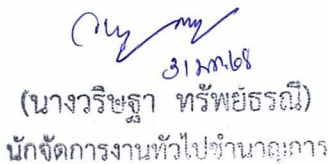 31 ม.ค. 68
(นางวริษฐา ทรัพย์ธรณี)
นักจัดการงานทั่วไปชำนาญการ